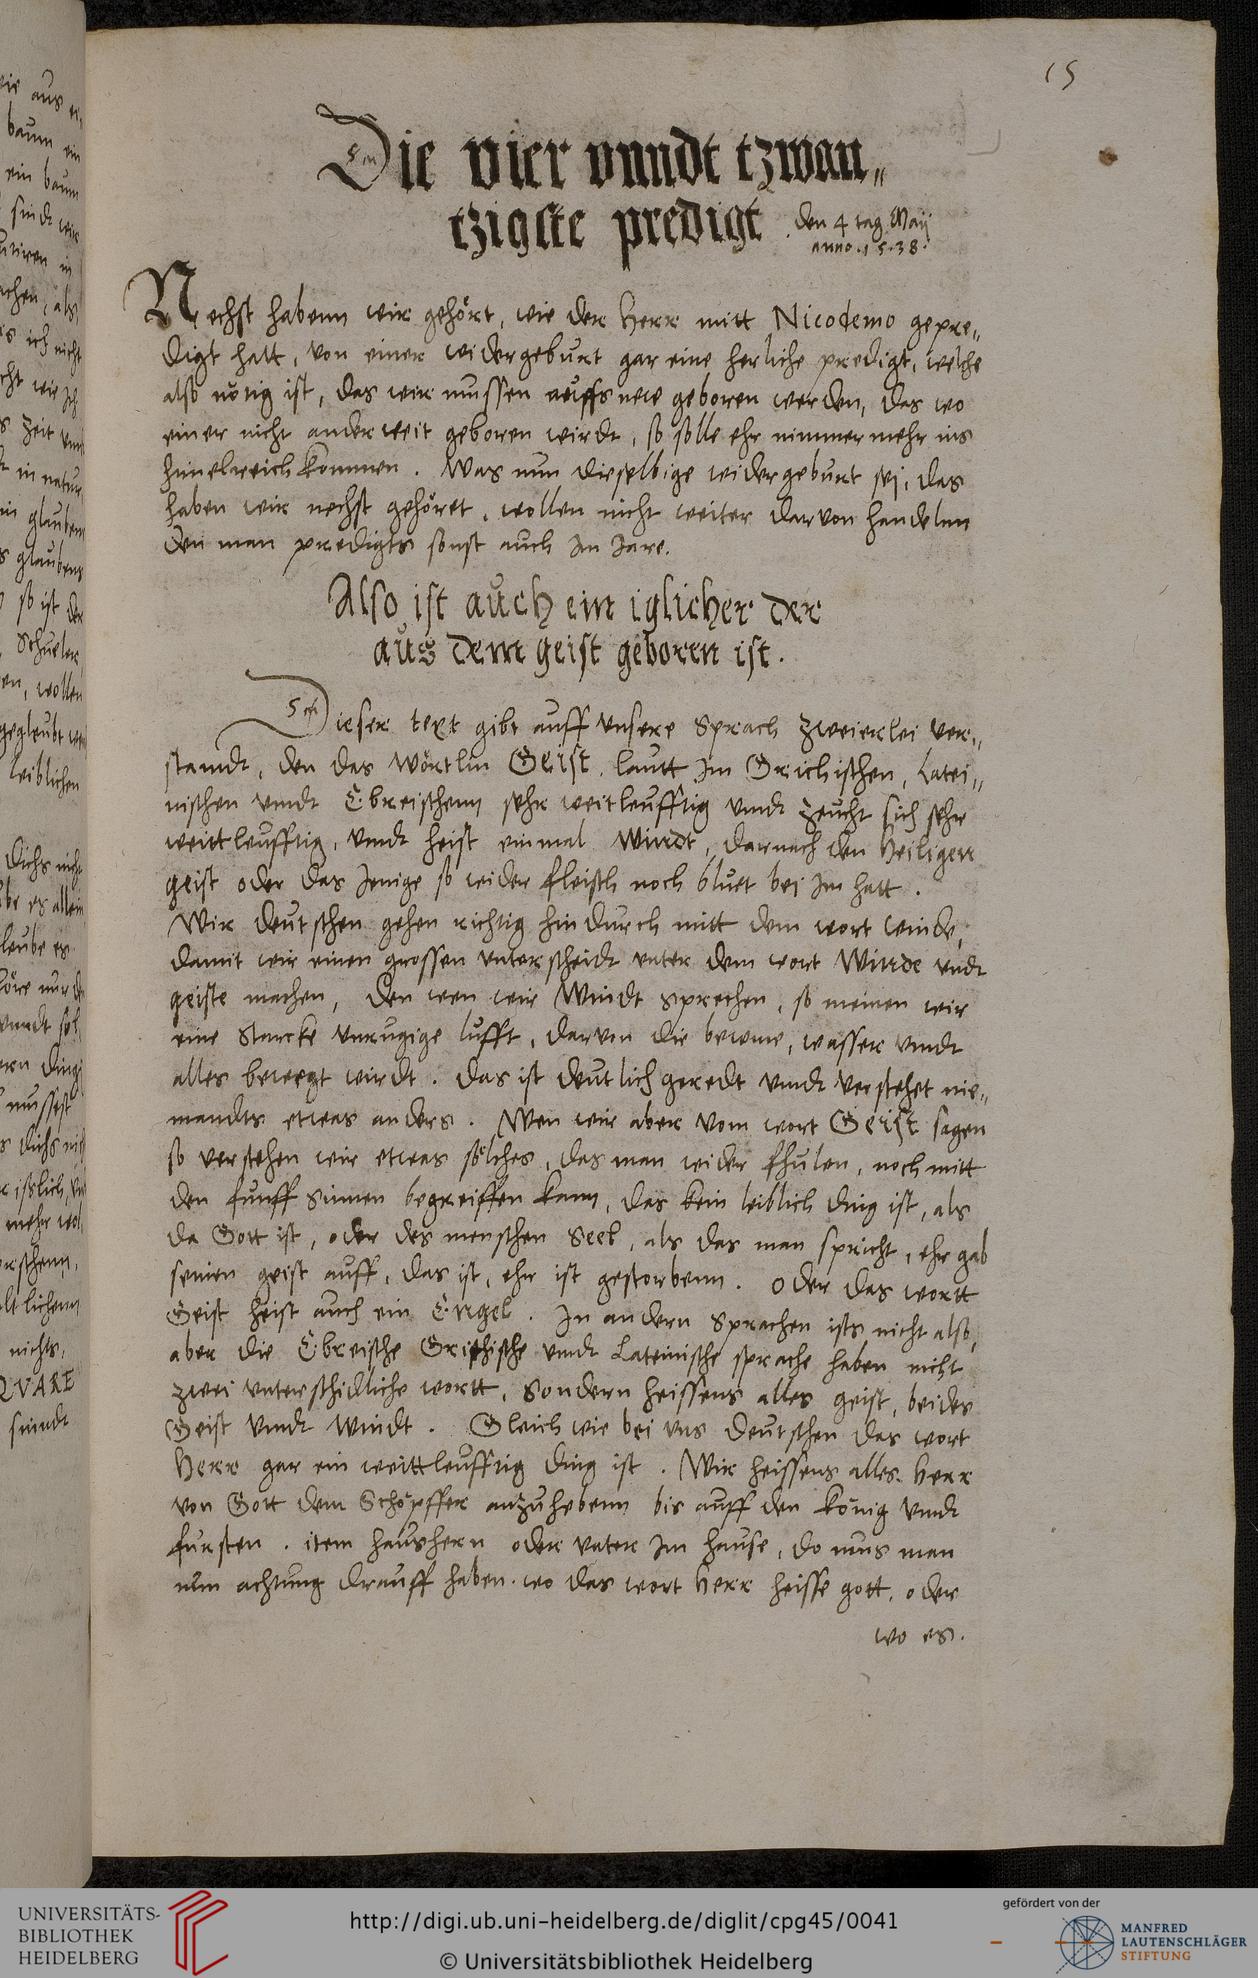 15
Die vier unndt tzwan„
tzigste predigt den 4 tag Maij
anno .1538.
Nechst habenn wir gehört, wie der Herr mitt Nicodemo gepre„
digt hatt, von einer widergeburt gar eine herliche predigt, welche
also nötig ist, das wir mussen auffs new geboren werden, das wo
einer nicht anderweit geboren wirdt, so solle ehr nimmermehr ins
himelreich kommen. Was nun dieselbige widergeburt sei, das
haben wir nechst gehöret, wollen nicht weiter darvon handelnn
den man predigts sonst auch im Jare.
Also ist auch ein iglicher der
aus dem geist geboren ist.
Dieser text gibt auff unsere Sprach zweierlei ver„
standt, den das wörtlin Geist, lautt im Grichischen, Latei„
nischen undt Ebreischenn sehr weitleufftig undt zeucht sich sehr
weittleufftig, undt heist einmal Windt, darnach den Heiligen
geist oder das Jenige so wider fleisch noch bluet bei im hatt.
Wir deutschen gehen richtig hindurch mitt dem wort winde,
damit wir einen grossen unterscheidt unter dem wort Winde undt
geiste machen, den wen wir Windt sprechen, so meinen wir
eine Starcke unrugige lufft, darvon die bewme, wasser undt
alles bewegt wirdt. das ist deutlich geredt undt verstehet nie„
mandts etwas anders. Wen wir aber vom wort Geist sagen
so verstehen wir etwas sölches, das man wider fhulen, noch mitt
den funff sinnen begreiffen kann, das kein leiblich ding ist, als
da Gott ist, oder des menschen Seel, als das man spricht, ehr gab
seinen geist auff, das ist, ehr ist gestorbenn. oder das wortt
Geist heist auch ein Engel. In andern Sprachen ists nicht also,
aber die Ebreische Grichische undt Lateinische sprache haben nicht
zwei unterschidliche wortt, Sondern heissens alles geist, beides
Geist undt Windt. Gleich wie bei uns deutschen das wort
Herr gar ein weittleufftig ding ist. Wir heissens alles Herr
von Gott dem Schöpffer anzuhebenn bis auff den könig undt
fursten. item haushern oder vater im hause, do mus man
nun achtung drauff haben. wo das wort Herr heisse gott, oder
wo es.
UNIVERSITÄTS-
BIBLIOTHEK
HEIDELBERG
http://digi.ub.uni-heidelberg.de/diglit/cpg45/0041
© Universitätsbibliothek Heidelberg
gefördert von der
MANFRED
LAUTENSCHLÄGER
STIFTUNG